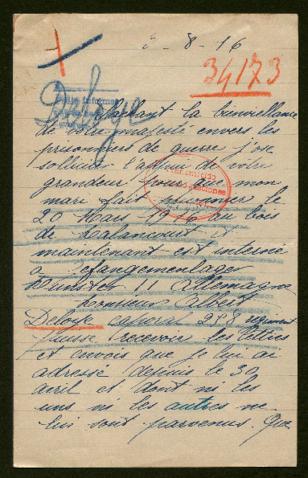 3 - 8 - 16
34173
Deloze
Sachant la bienveillance
de votre majesté envers les
prisonniers de guerre j'ose
solliciter l'appui de votre
grandeur pour que mon
mari fait prisonnier le
20 Mars 1916 au bois
de Malancourt et
maintenant est interné
à Gefangenenlager
Munster II Allemagne
Monsieur Albert
Deloze caporal 258 régiment
puisse recevoir les lettres
et envois que je lui ai
adressé depuis le 30
avril et dont ni les
uns ni les autres ne
lui sont parvenus. Que